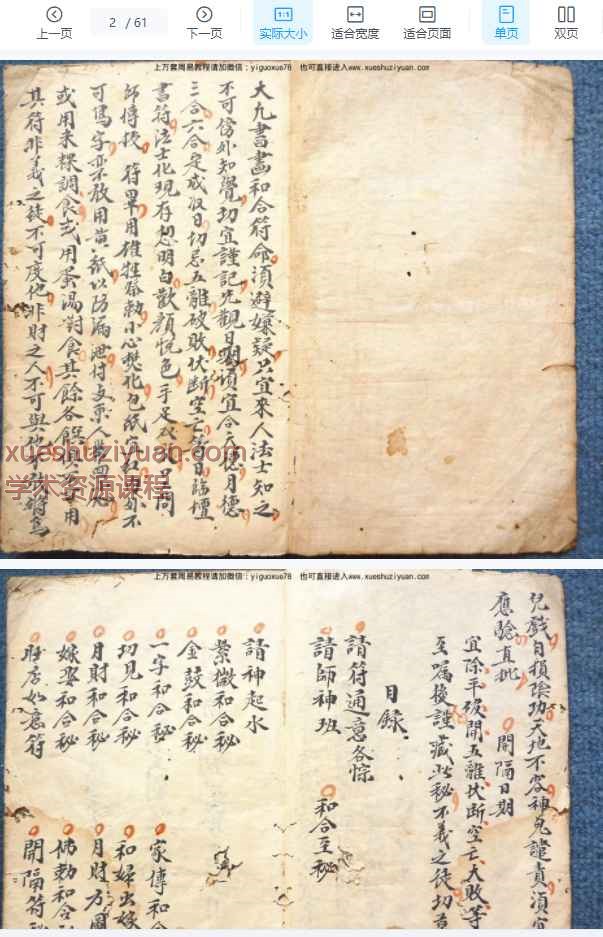 上一页
2 / 61
下一页
实际大小
适合宽度
适合页面
单页
双页
上万套周易教程请加微信：yiguoxue78 也可直接进入www.xueshuziyuan.com
大凡書畫和合符命須避嫌疑只宜來人法士知之
不可傍外知覺切宜謹記先觀日期須宜合天德月德
三合六合定成收日切忌五離破敗伏断空亡等日臨壇
書符法士化現存想明白歡顏悅色手足
師傳授 符單用雄牲發勅小心焚化包紙宜紅
可寫字票不敢用黃紙以防漏泄付与票人
或用米粿調食或用蛋湯對食其餘各
其符非義之徒不可度他非財之人不可與他
xueshuziyuan.com
学术资源课程
上万套周易教程请加微信：yiguoxue78 也可直接进入www.xueshuziyuan.com
兒戲自損陰功天地不容神鬼譴責須宜
應驗直批 開隔日期
宜除平破開五離伏断空亡大敗等
至嘱後謹藏此秘不義之徒切
目錄
請符通意各悰
請師神班 和合至秘
請神起水
紫微和合秘
金鼓和合秘
一字和合秘 家傳和合
切見和合秘 和婦出嫁
月財和合秘 月財方圓
嫁娶和合秘 佛勅和合
旺店如意符 開隔符